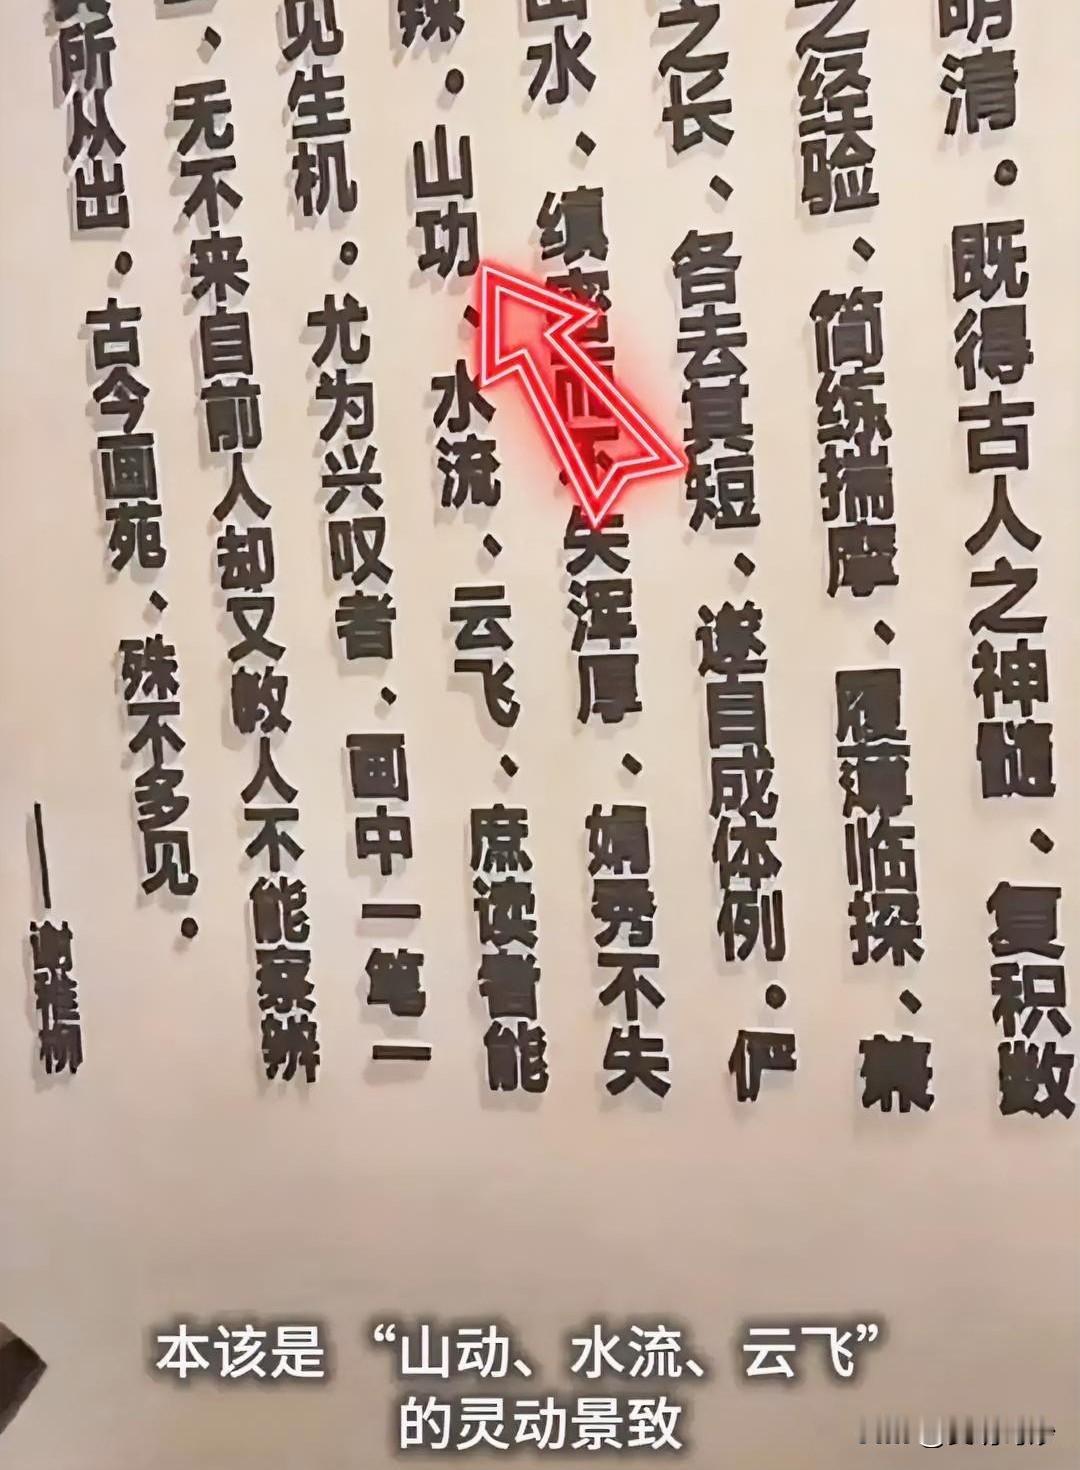 明清。既得古人之神髓、复积数
之经验、简练揣摩、履薄临探、兼
之长、各去其短、遂自成体例。俨
山水、缜密而不失浑厚、娟秀不失
辣。山功、水流、云飞、庶读者能
见生机。尤为兴叹者、画中一笔一
、无不来自前人却又教人不能察辨
所从出。古今画苑、殊不多见。
——谢稚柳
本该是“山动、水流、云飞”
的灵动景致